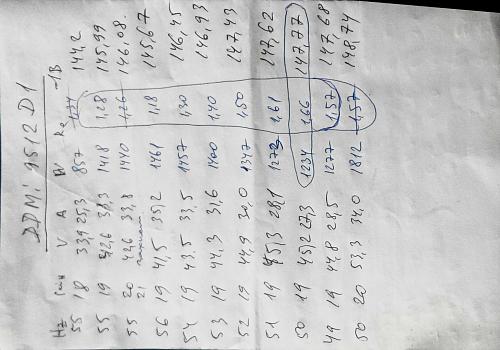 DDMi 9512 D1
Hz сек V A W Re -1B
55 18 33,9 25,3 857 1,24 144,2
55 19 42,6 33,3 1418 1,28 145,99
55 20 42,6 33,8 1440 1,26 146,08
21
56 19 41,5 35,2 1461 1,18 145,67
54 19 43,5 33,5 1457 1,30 146,45
53 19 44,3 31,6 1400 1,40 146,93
52 19 44,9 30,0 1347 1,50 147,43
51 19 45,3 28,1 1273 1,61 147,62
50 19 45,2 27,3 1234 1,66 147,77
49 19 44,8 28,5 1277 1,57 147,68
50 20 53,3 34,0 1812 1,57 148,74